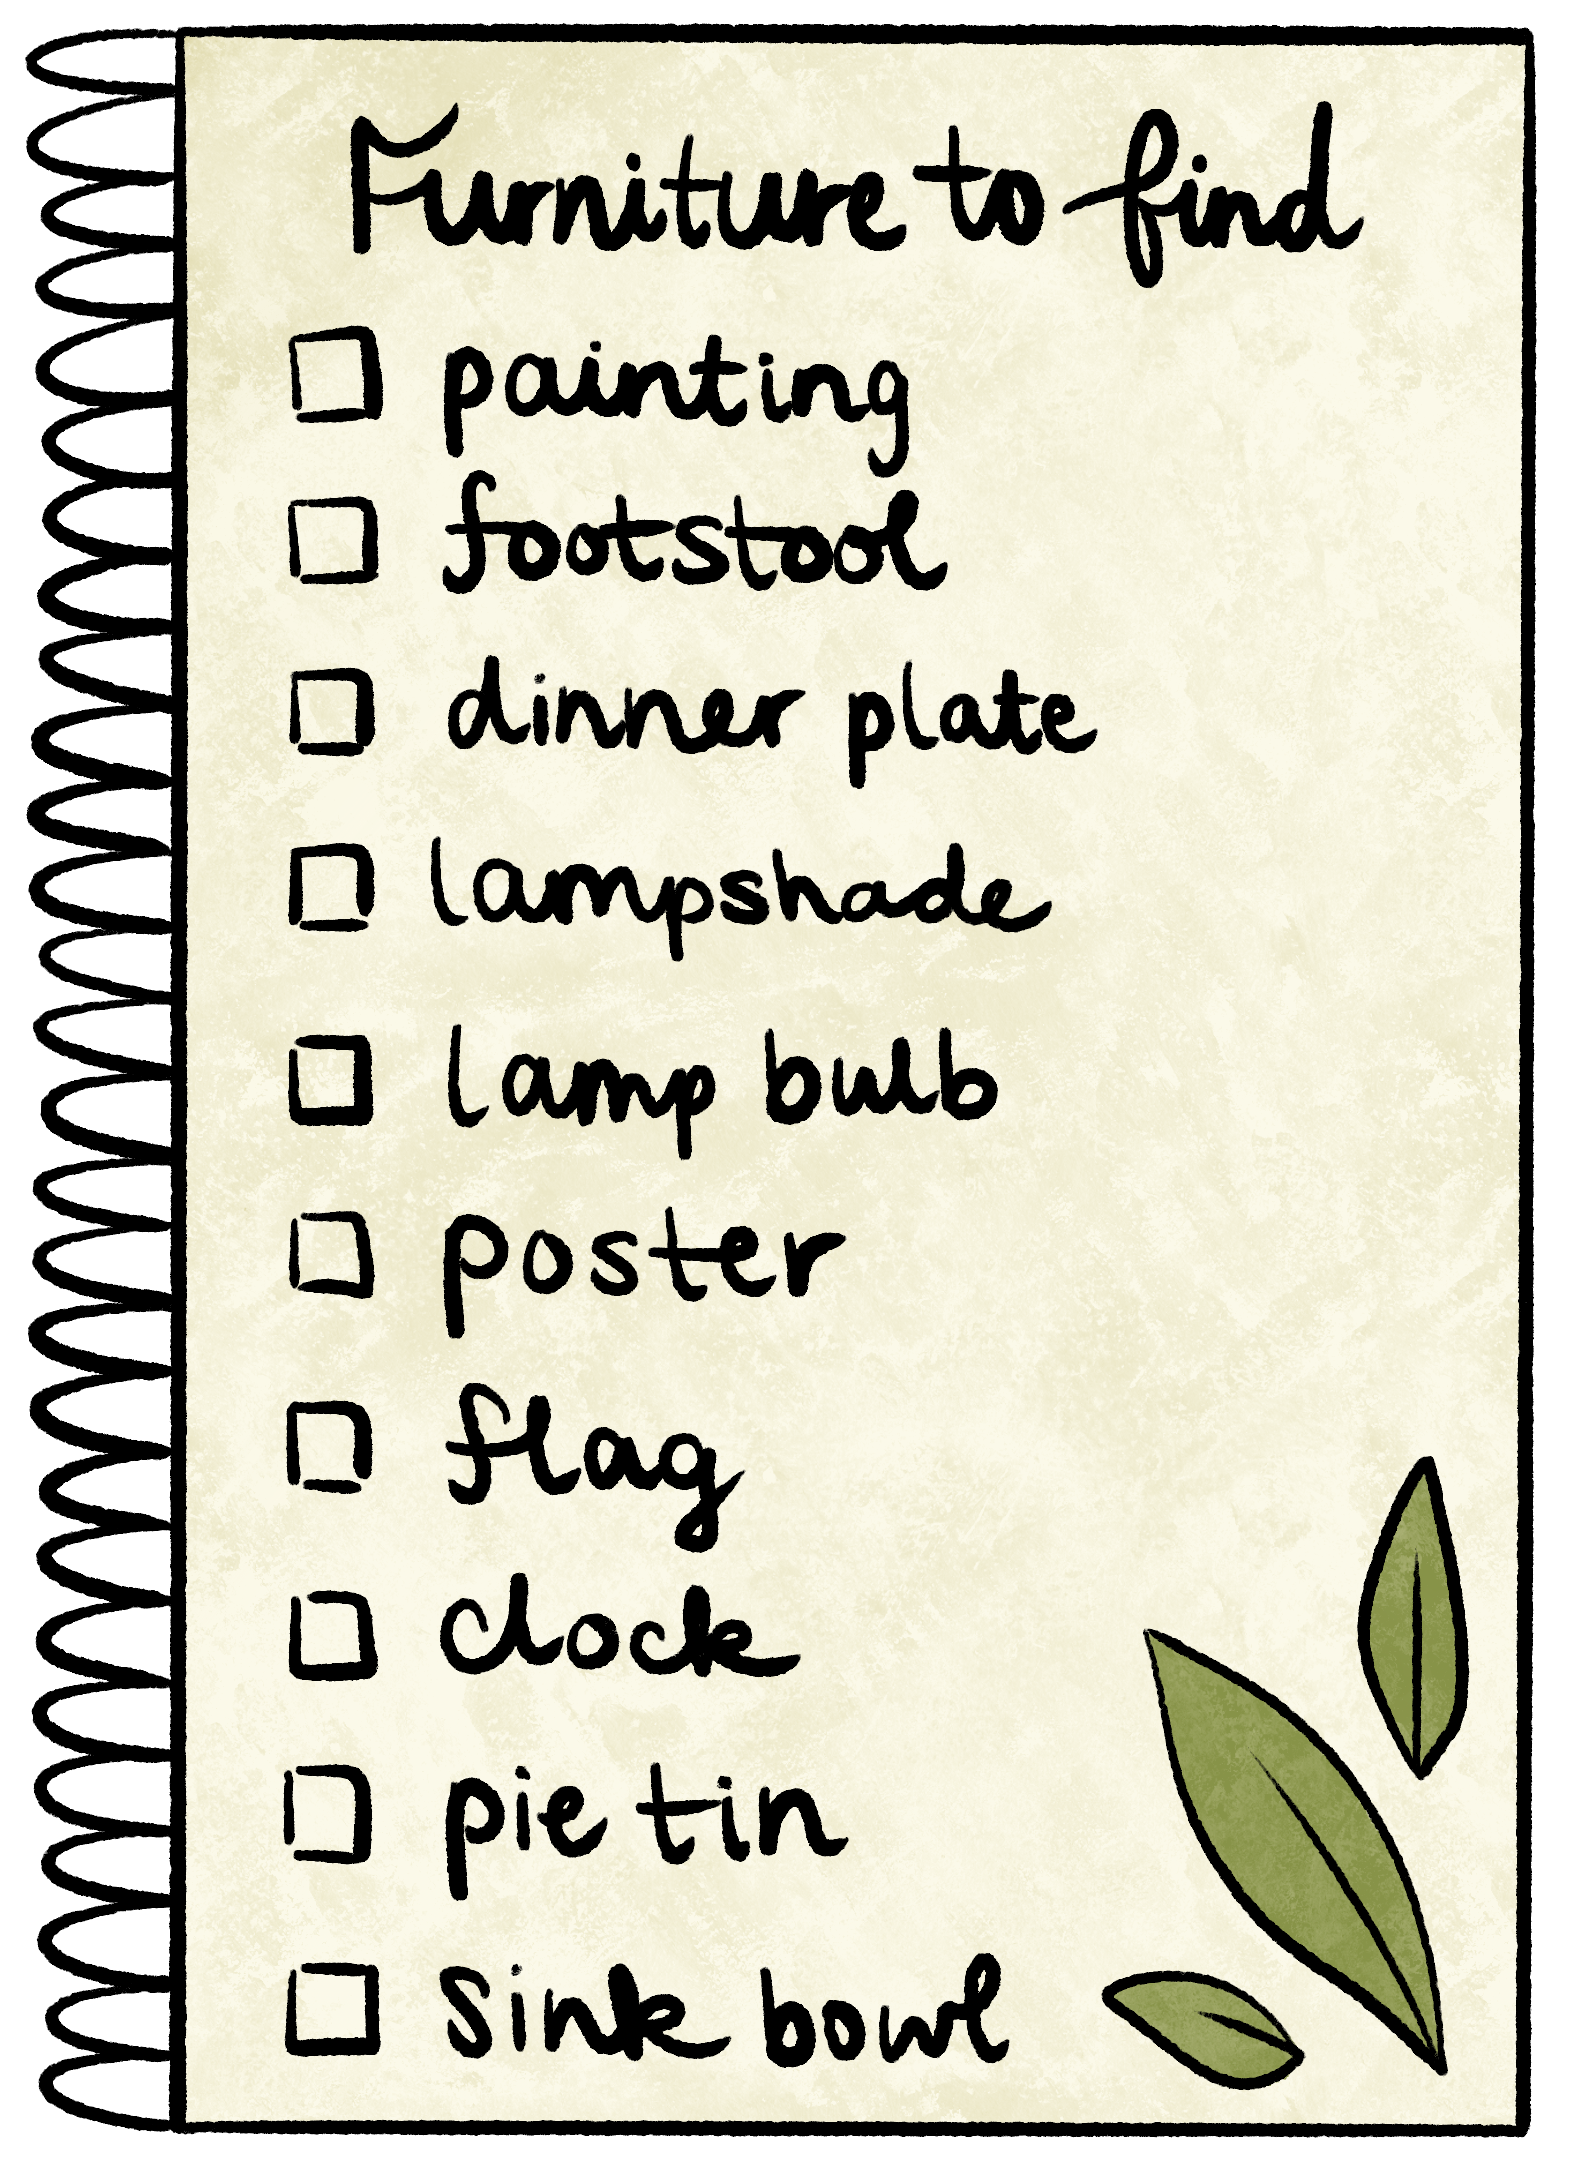 Furniture to find
painting
footstool
dinner plate
lampshade
lamp bulb
poster
flag
clock
pie tin
sink bowl